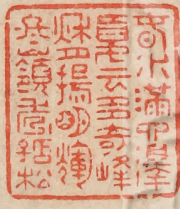 春水滿四澤
夏云多奇峰
秋月揚明輝
冬嶺秀孤松